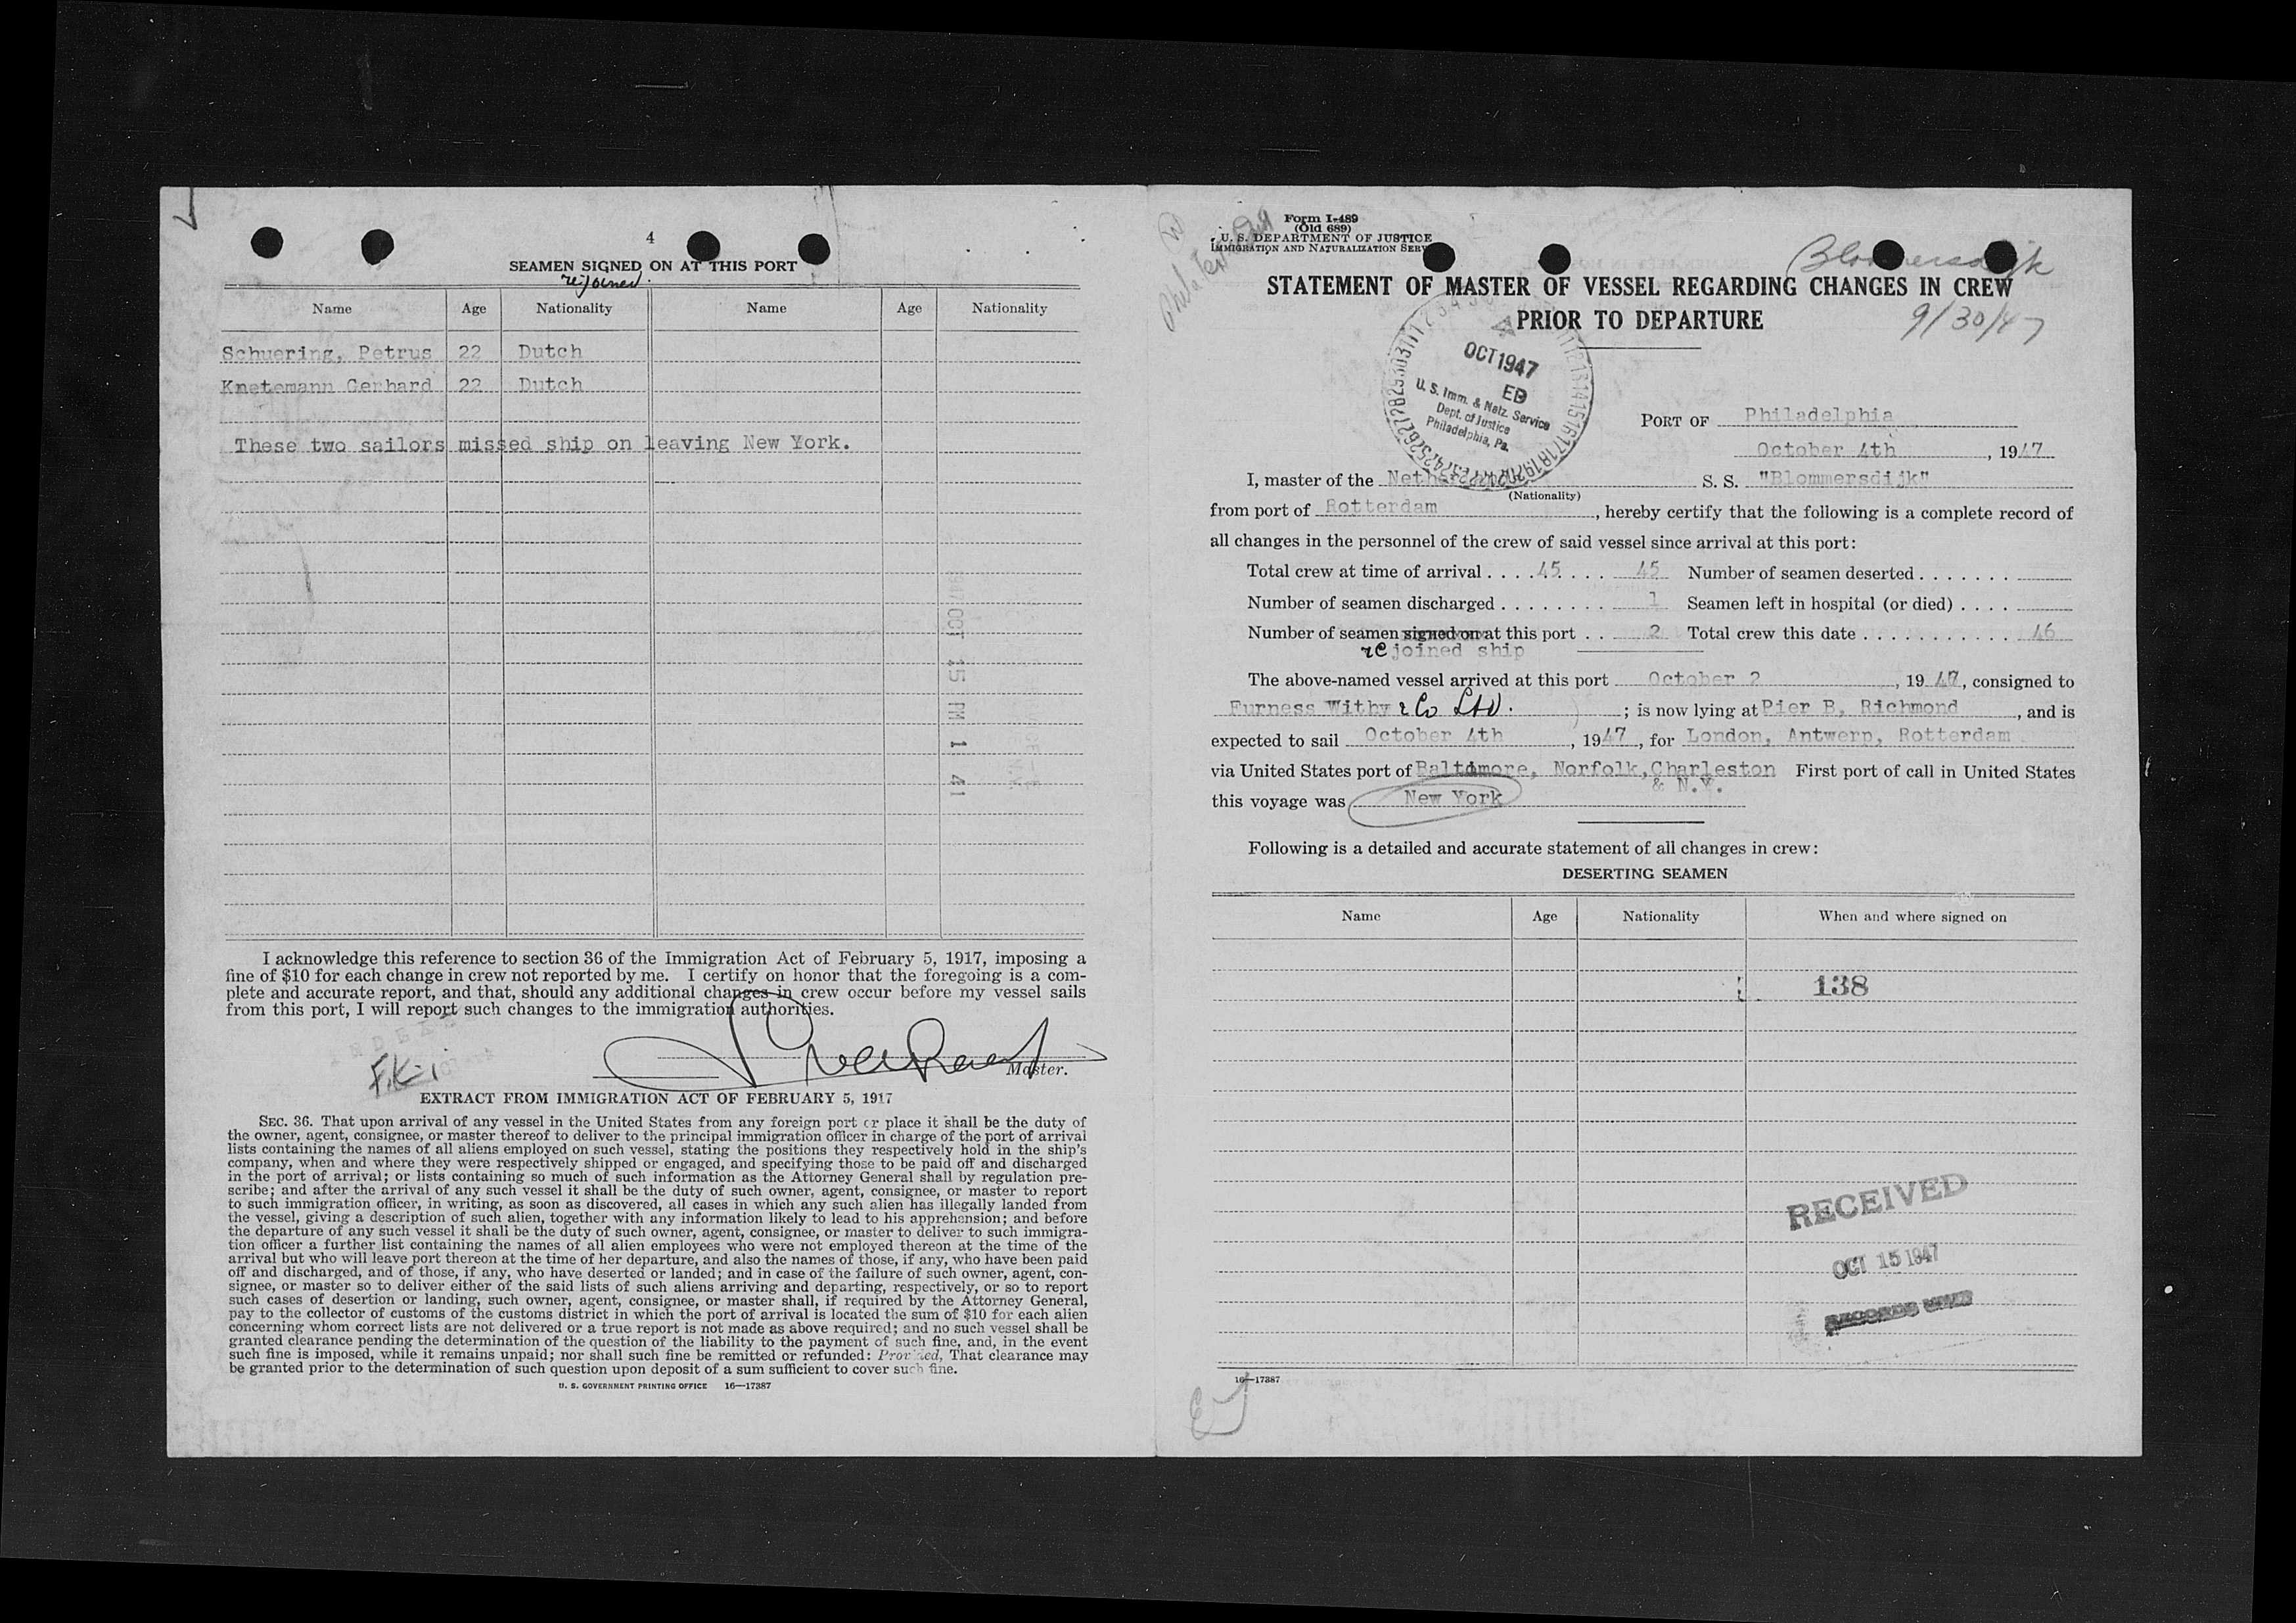 4
SEAMEN SIGNED ON AT THIS PORT
rejoined.
Name Age Nationality Name Age Nationality
Schuering, Petrus 22 Dutch
Knetemann Gerhard 22 Dutch
These two sailors missed ship on leaving New York.
1947 OCT 15 PM 1 41
I acknowledge this reference to section 36 of the Immigration Act of February 5, 1917, imposing a
fine of $10 for each change in crew not reported by me. I certify on honor that the foregoing is a com-
plete and accurate report, and that, should any additional changes in crew occur before my vessel sails
from this port, I will report such changes to the immigration authorities.
Master.
EXTRACT FROM IMMIGRATION ACT OF FEBRUARY 5, 1917
SEC. 36. That upon arrival of any vessel in the United States from any foreign port or place it shall be the duty of
the owner, agent, consignee, or master thereof to deliver to the principal immigration officer in charge of the port of arrival
lists containing the names of all aliens employed on such vessel, stating the positions they respectively hold in the ship's
company, when and where they were respectively shipped or engaged, and specifying those to be paid off and discharged
in the port of arrival; or lists containing so much of such information as the Attorney General shall by regulation pre-
scribe; and after the arrival of any such vessel it shall be the duty of such owner, agent, consignee, or master to report
to such immigration officer, in writing, as soon as discovered, all cases in which any such alien has illegally landed from
the vessel, giving a description of such alien, together with any information likely to lead to his apprehension; and before
the departure of any such vessel it shall be the duty of such owner, agent, consignee, or master to deliver to such immigra-
tion officer a further list containing the names of all alien employees who were not employed thereon at the time of the
arrival but who will leave port thereon at the time of her departure, and also the names of those, if any, who have been paid
off and discharged, and of those, if any, who have deserted or landed; and in case of the failure of such owner, agent, con-
signee, or master so to deliver either of the said lists of such aliens arriving and departing, respectively, or so to report
such cases of desertion or landing, such owner, agent, consignee, or master shall, if required by the Attorney General,
pay to the collector of customs of the customs district in which the port of arrival is located the sum of $10 for each alien
concerning whom correct lists are not delivered or a true report is not made as above required; and no such vessel shall be
granted clearance pending the determination of the question of the liability to the payment of such fine, and, in the event
such fine is imposed, while it remains unpaid; nor shall such fine be remitted or refunded: Provided, That clearance may
be granted prior to the determination of such question upon deposit of a sum sufficient to cover such fine.
U. S. GOVERNMENT PRINTING OFFICE 16—17387
Form I-489
(Old 689)
U. S. DEPARTMENT OF JUSTICE
IMMIGRATION AND NATURALIZATION SERV
Blommersdijk
STATEMENT OF MASTER OF VESSEL REGARDING CHANGES IN CREW
PRIOR TO DEPARTURE
9/30/47
OCT 1947
ED
U. S. Imm. & Natz. Service
Dept. of Justice
Philadelphia, Pa.
PORT OF Philadelphia
October 4th, 1947
I, master of the Netherlands S. S. "Blommersdijk"
(Nationality)
from port of Rotterdam, hereby certify that the following is a complete record of
all changes in the personnel of the crew of said vessel since arrival at this port:
Total crew at time of arrival . . . . 45 . . . . 45 Number of seamen deserted . . . . . . .
Number of seamen discharged . . . . . . . . 1 Seamen left in hospital (or died) . . . .
Number of seamen signed on at this port . . 2 Total crew this date . . . . . . . . . . . . 46
rejoined ship
The above-named vessel arrived at this port October 2, 1947, consigned to
Furness Withy & Co Ltd. ; is now lying at Pier B, Richmond, and is
expected to sail October 4th, 1947, for London, Antwerp, Rotterdam
via United States port of Baltimore, Norfolk, Charleston First port of call in United States
& N.Y.
this voyage was New York
Following is a detailed and accurate statement of all changes in crew:
DESERTING SEAMEN
Name Age Nationality When and where signed on
138
RECEIVED
OCT 15 1947
16—17387